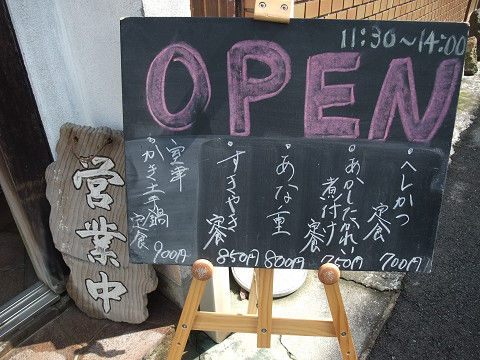 11:30~14:00
OPEN
へしかつ
定食
700円
あかしたかれい
煮付け
定食
750円
あな重
800円
すきやき
定食
850円
かき土手鍋
定食
900円
営業中